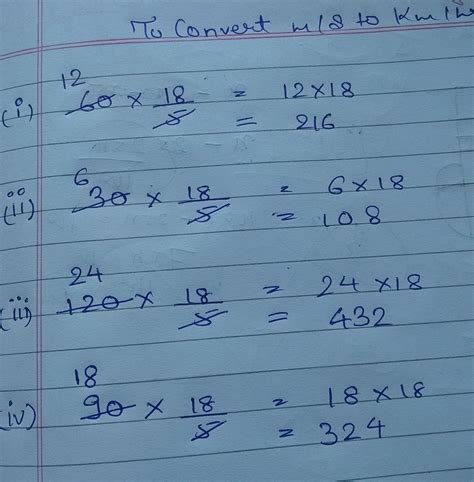 To Convert m/s to Km/h
12
(i) 60 × 18/5 = 12×18
= 216
6
(ii) 30 × 18/5 = 6×18
= 108
24
(iii) 120 × 18/5 = 24×18
= 432
18
(iv) 90 × 18/5 = 18×18
= 324